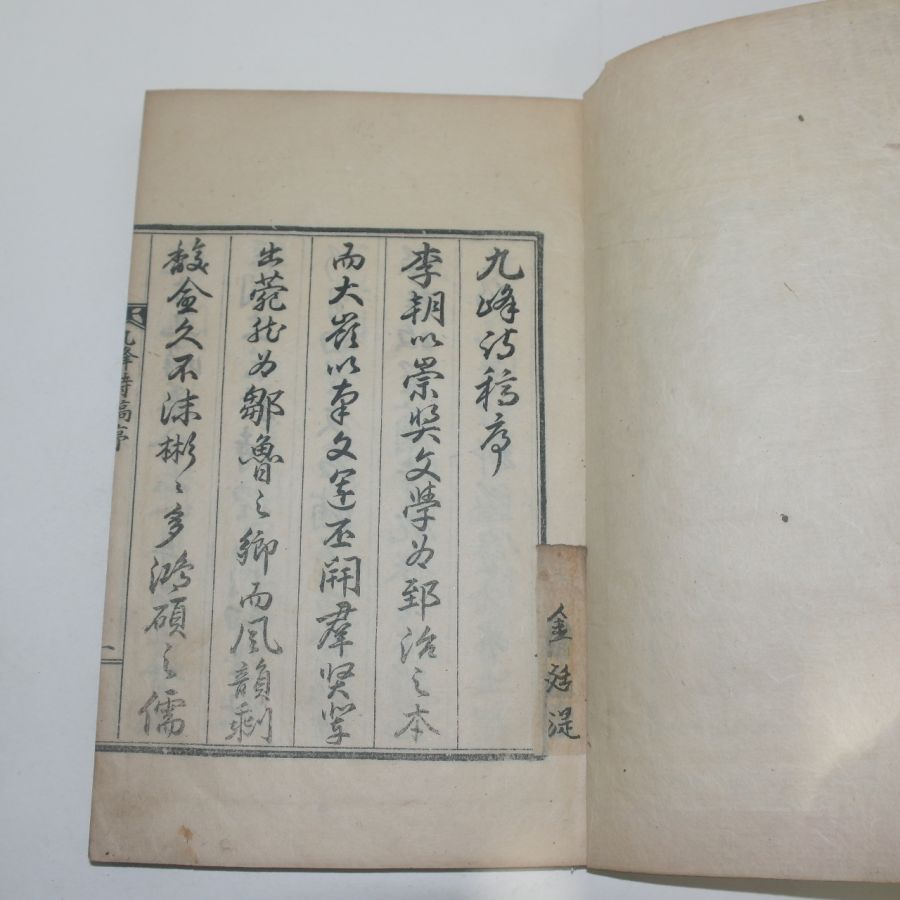 九峰詩稿序
李朝以崇奬文學為郅治之本
而大嶺以南文運丕開羣賢輩
出蔚然為鄒魯之鄉而風韻剩
馥愈久不沫彬〻多鴻碩之儒
九峰詩稿序
一
金廷湜